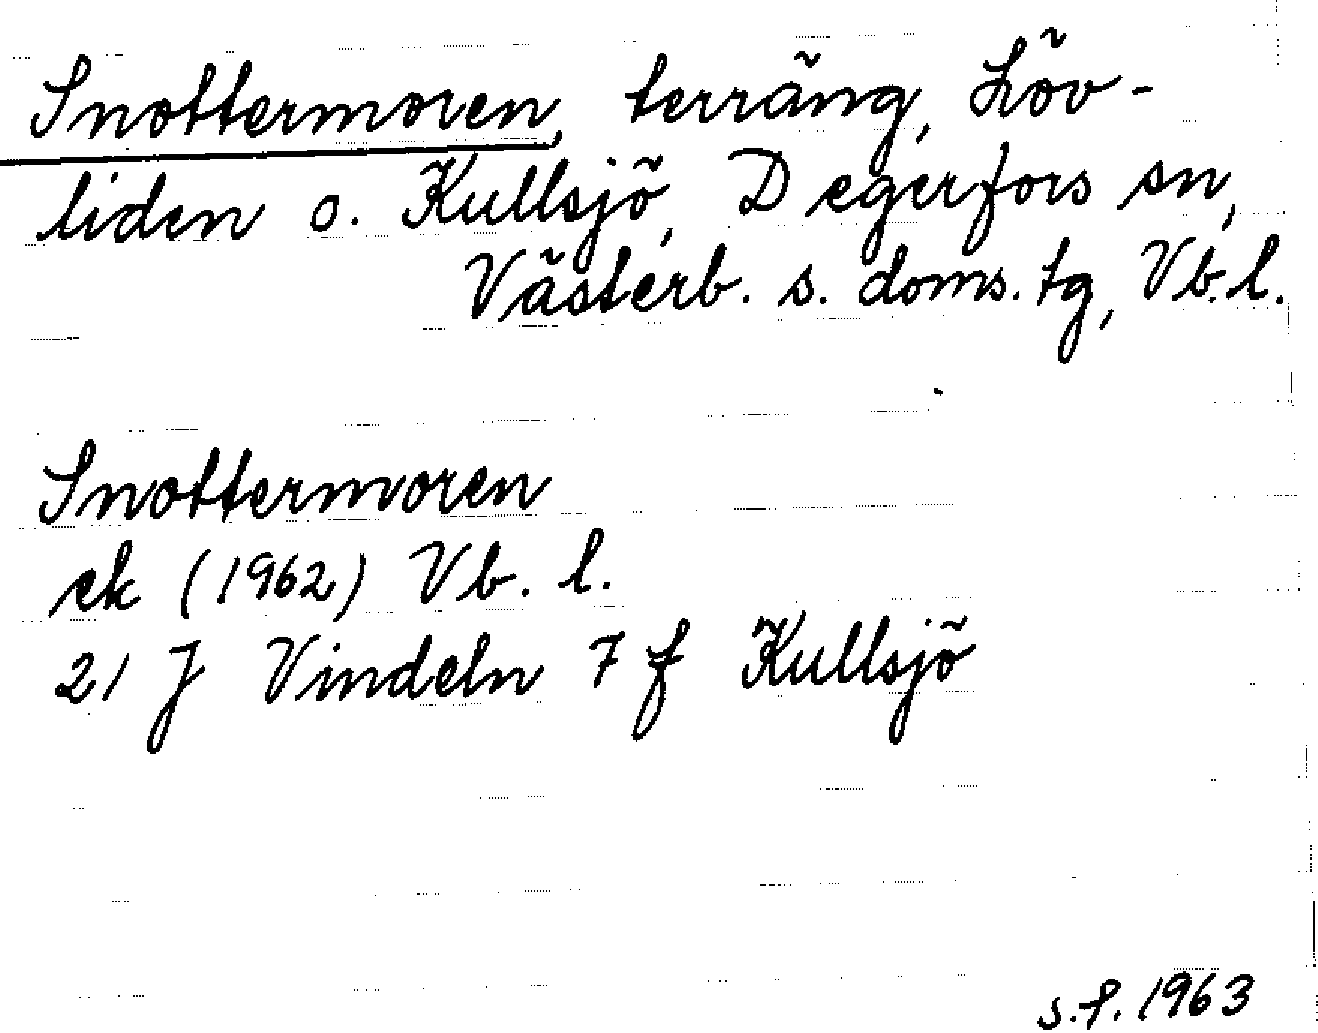 Snottermoren, terräng, Löv-
liden o. Kullsjö, Degerfors sn,
Västerb. s. doms. tg, Vb.l.
Snottermoren
ek (1962) Vb. l.
21 J Vindeln 7 f Kullsjö
s.f. 1963